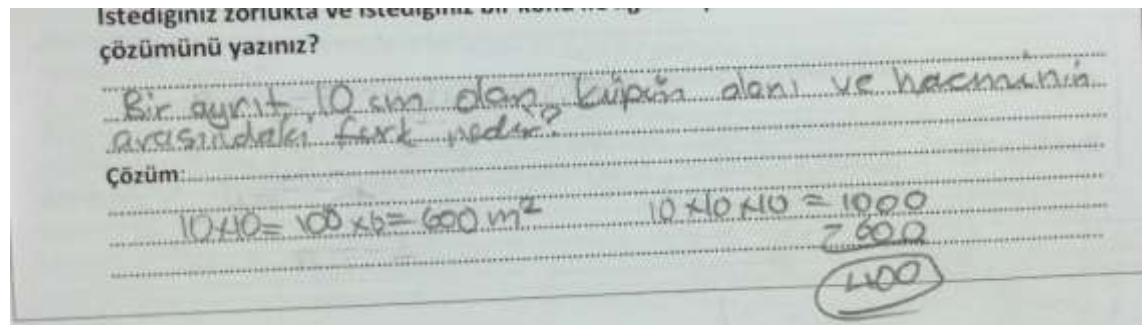 İstediğiniz zorlukta ve istediğiniz bir konu
çözümünü yazınız?
Bir ayrıt 10 cm olan küpün alanı ve hacminin
arasındaki fark nedir?
Çözüm:
10x10= 100x6= 600 m² 10x10x10 = 1000
- 600
400